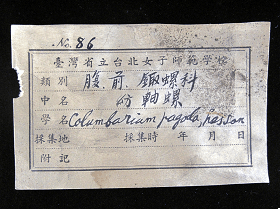 No. 86
臺灣省立台北女子師範學校
類別 腹.前.鍛螺科
中名 仿軸螺
學名 Columbarium pagoda
採集地 採集時 年 月 日
附記